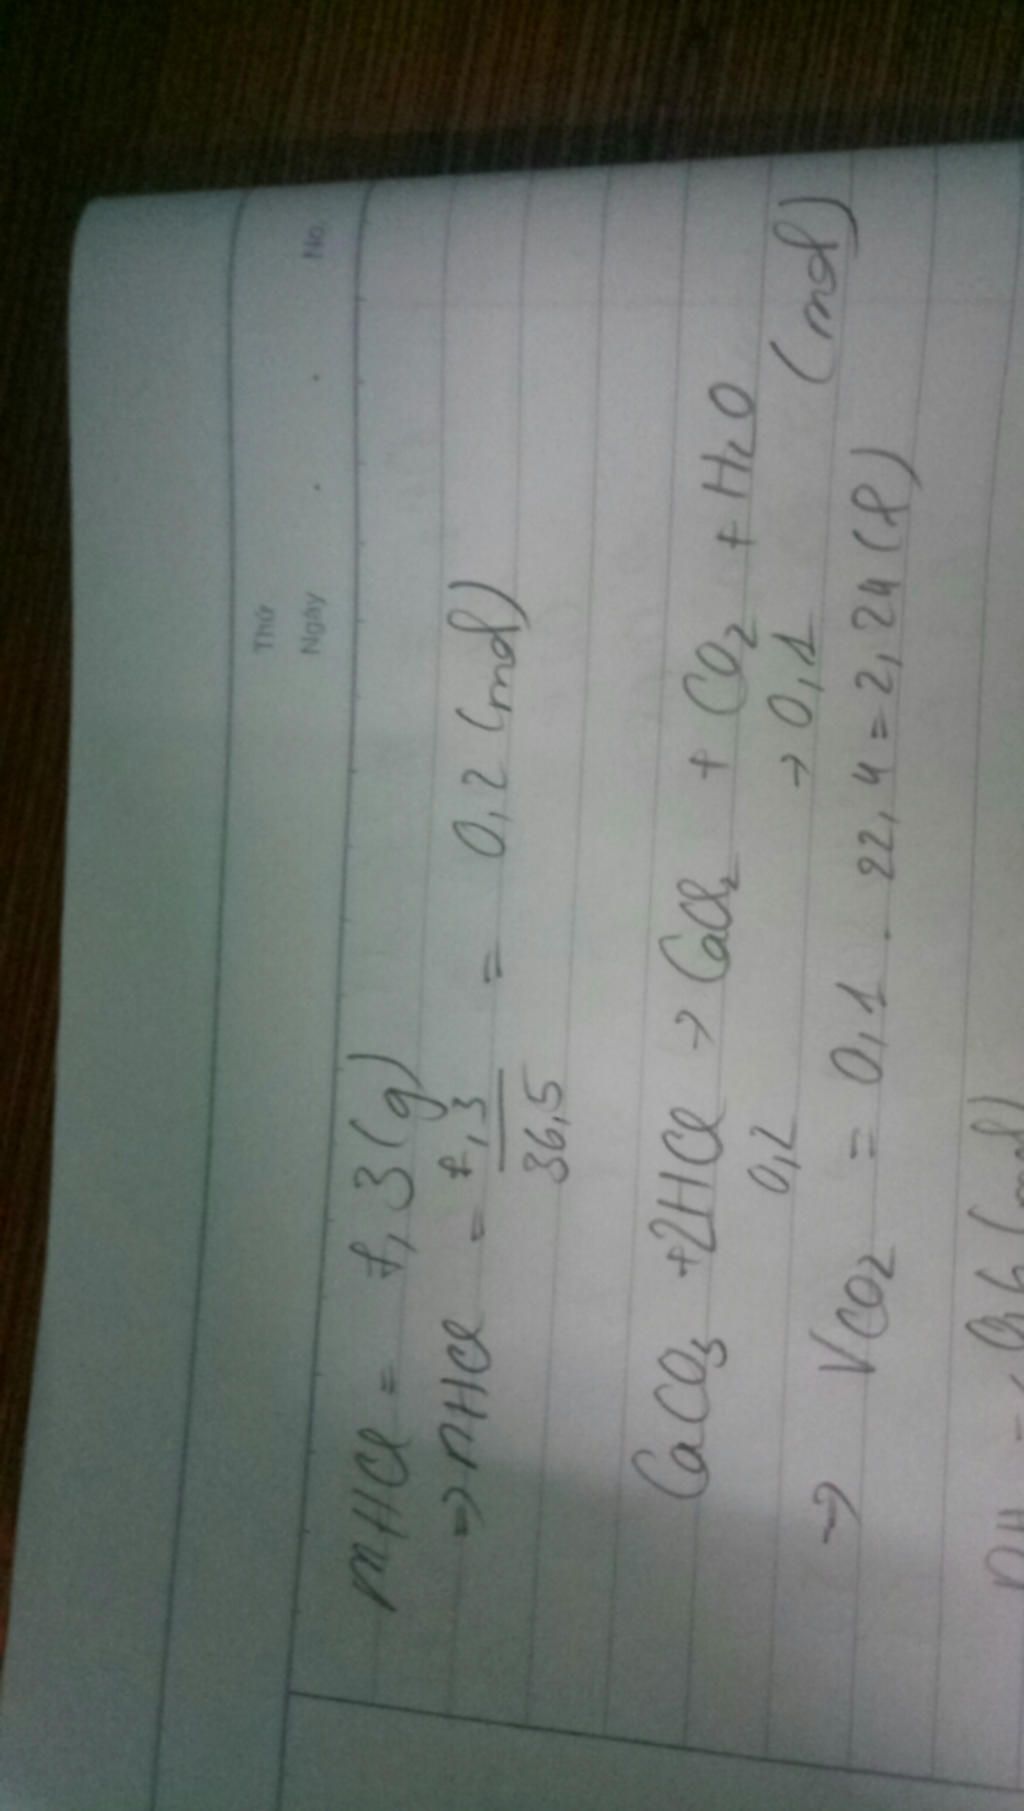 Thứ
Ngày . . No.
mHCl = 7,3 (g)
→ nHCl = 7,3/36,5 = 0,2 (mol)
CaCO3 + 2HCl → CaCl2 + CO2 + H2O
0,2 → 0,1 (mol)
→ VCO2 = 0,1 . 22,4 = 2,24 (l)